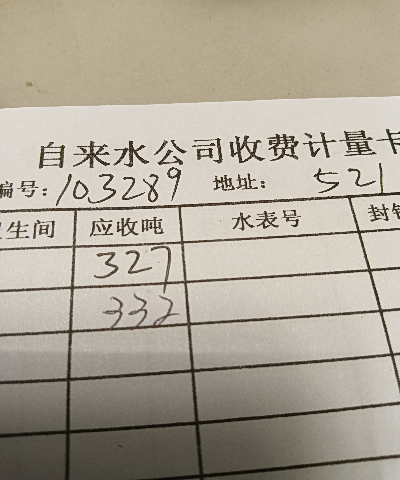 自来水公司收费计量卡
编号: 103289 地址: 521
卫生间 应收吨 水表号
327
332